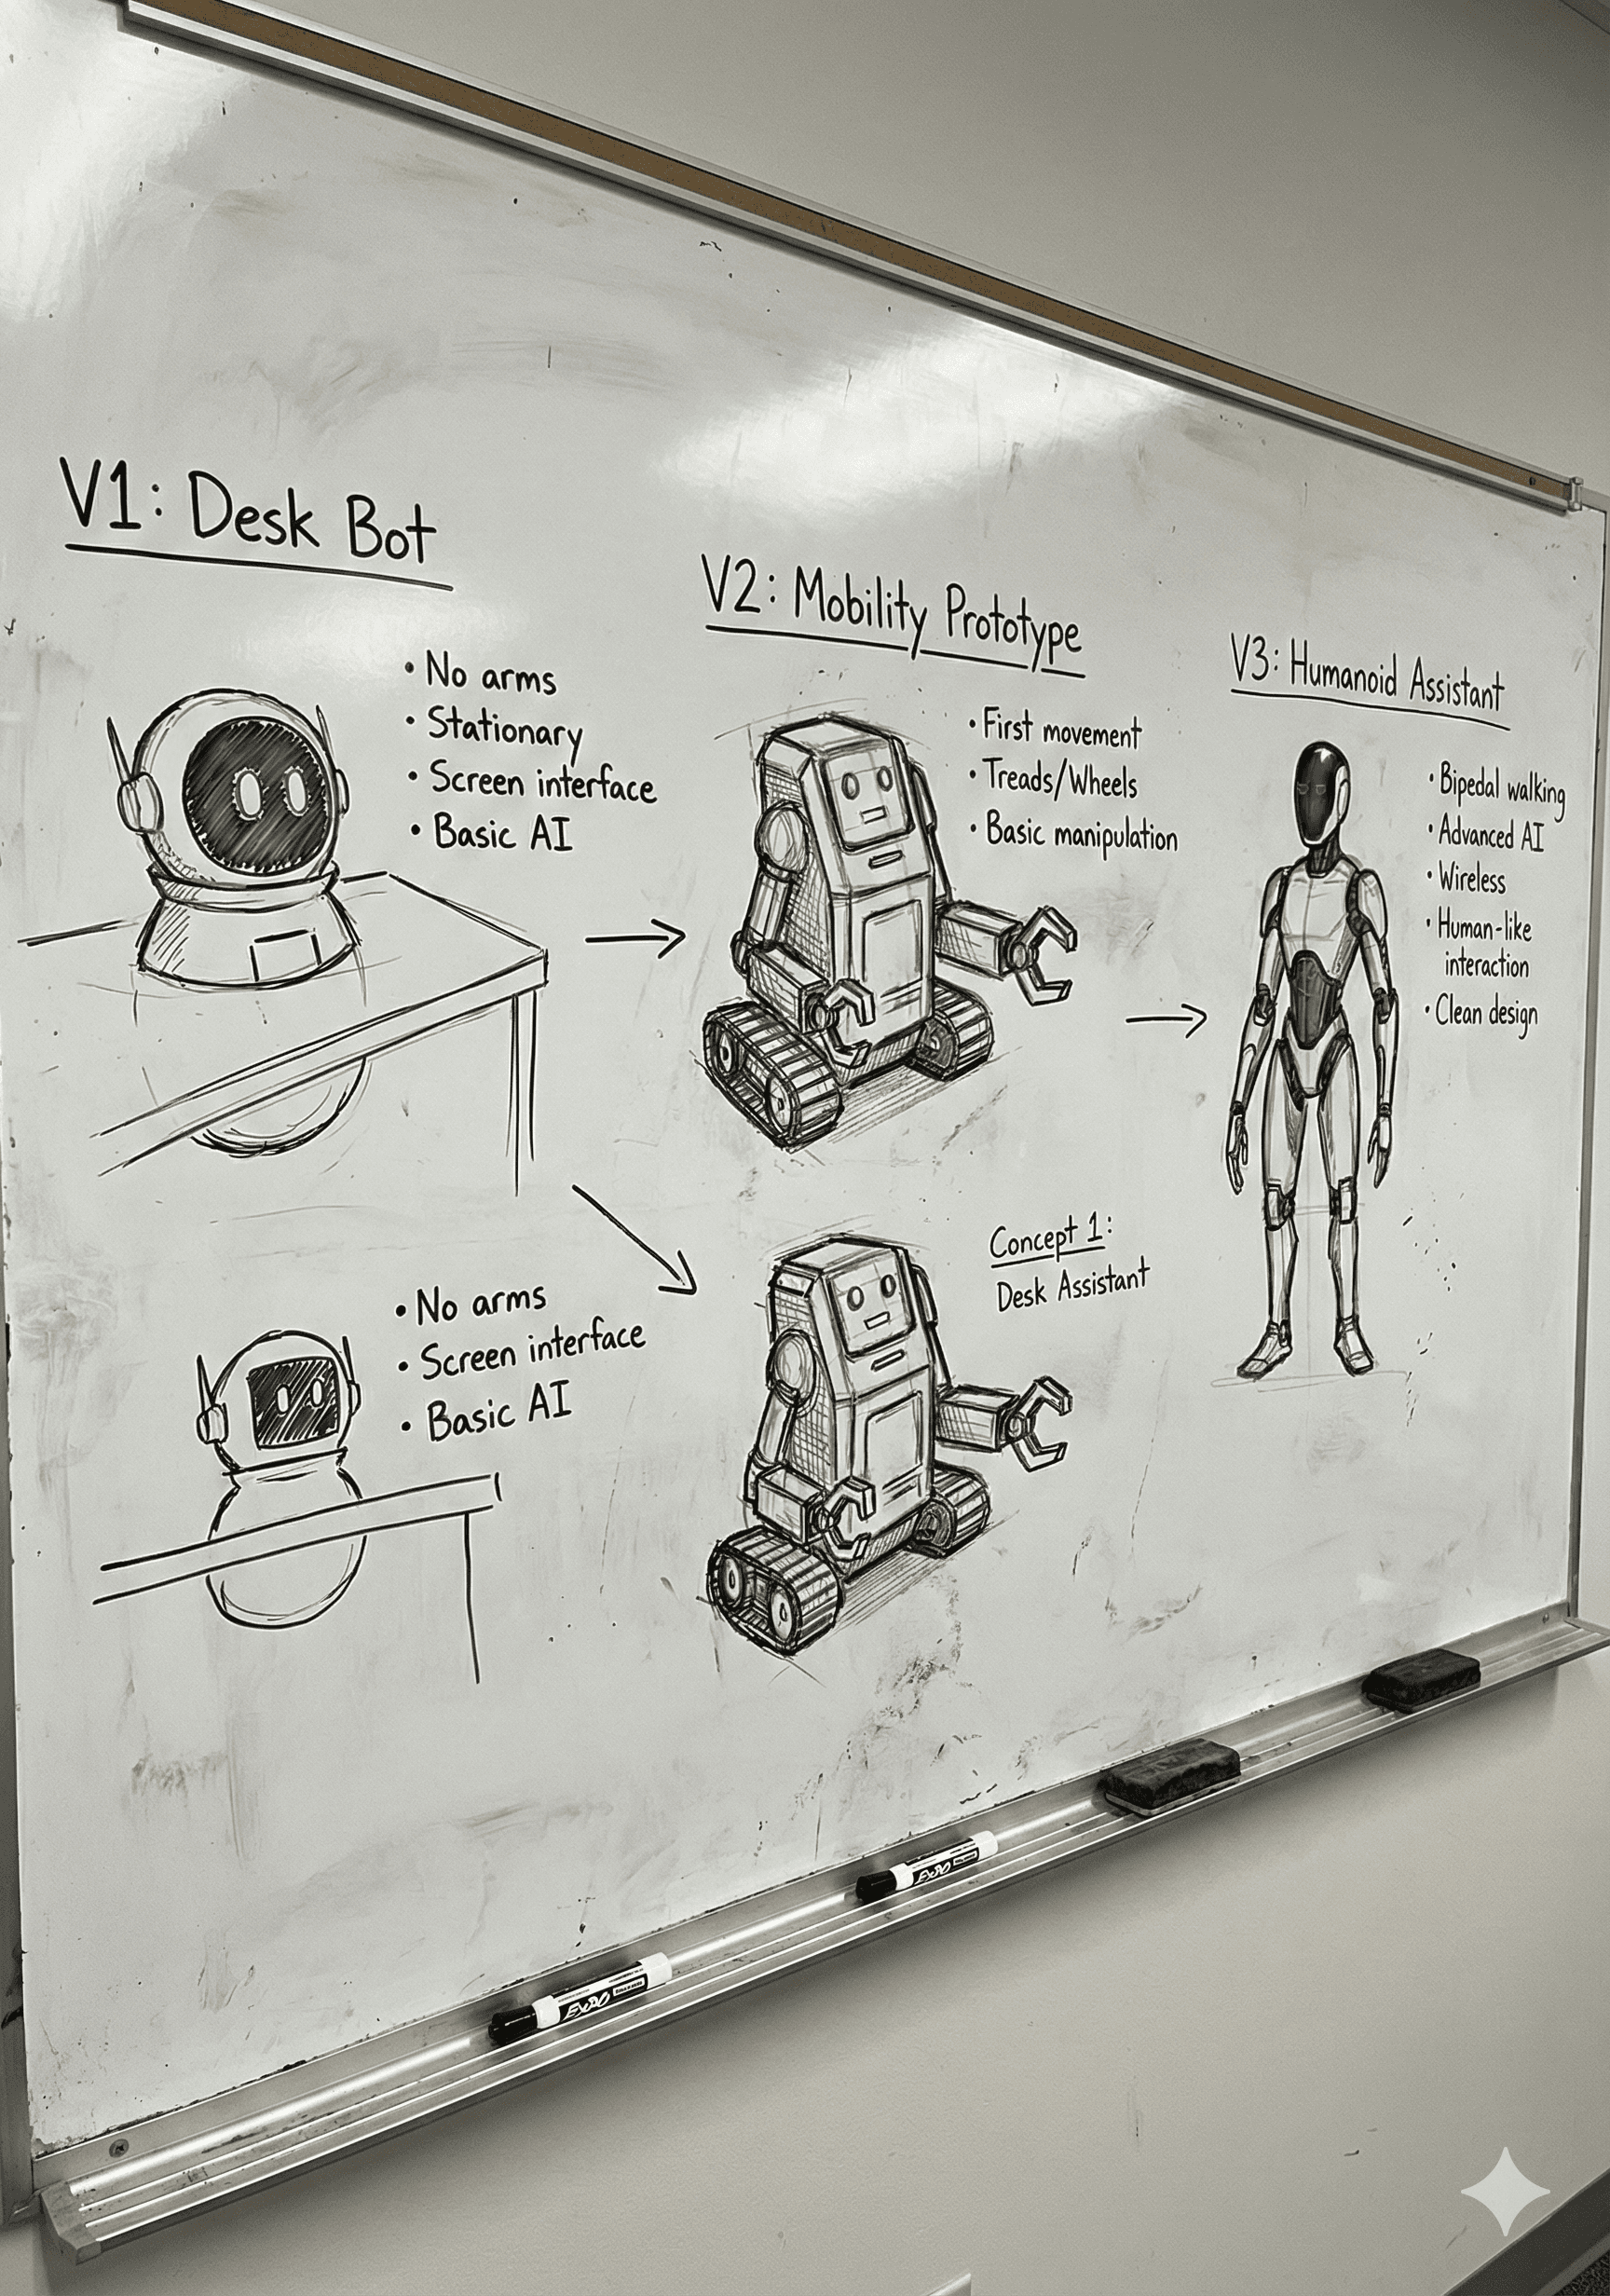 V1: Desk Bot
• No arms
• Stationary
• Screen interface
• Basic AI
V2: Mobility Prototype
• First movement
• Treads/Wheels
• Basic manipulation
V3: Humanoid Assistant
• Bipedal walking
• Advanced AI
• Wireless
• Human-like
interaction
• Clean design
• No arms
• Screen interface
• Basic AI
Concept 1:
Desk Assistant
EXPO
EXPO